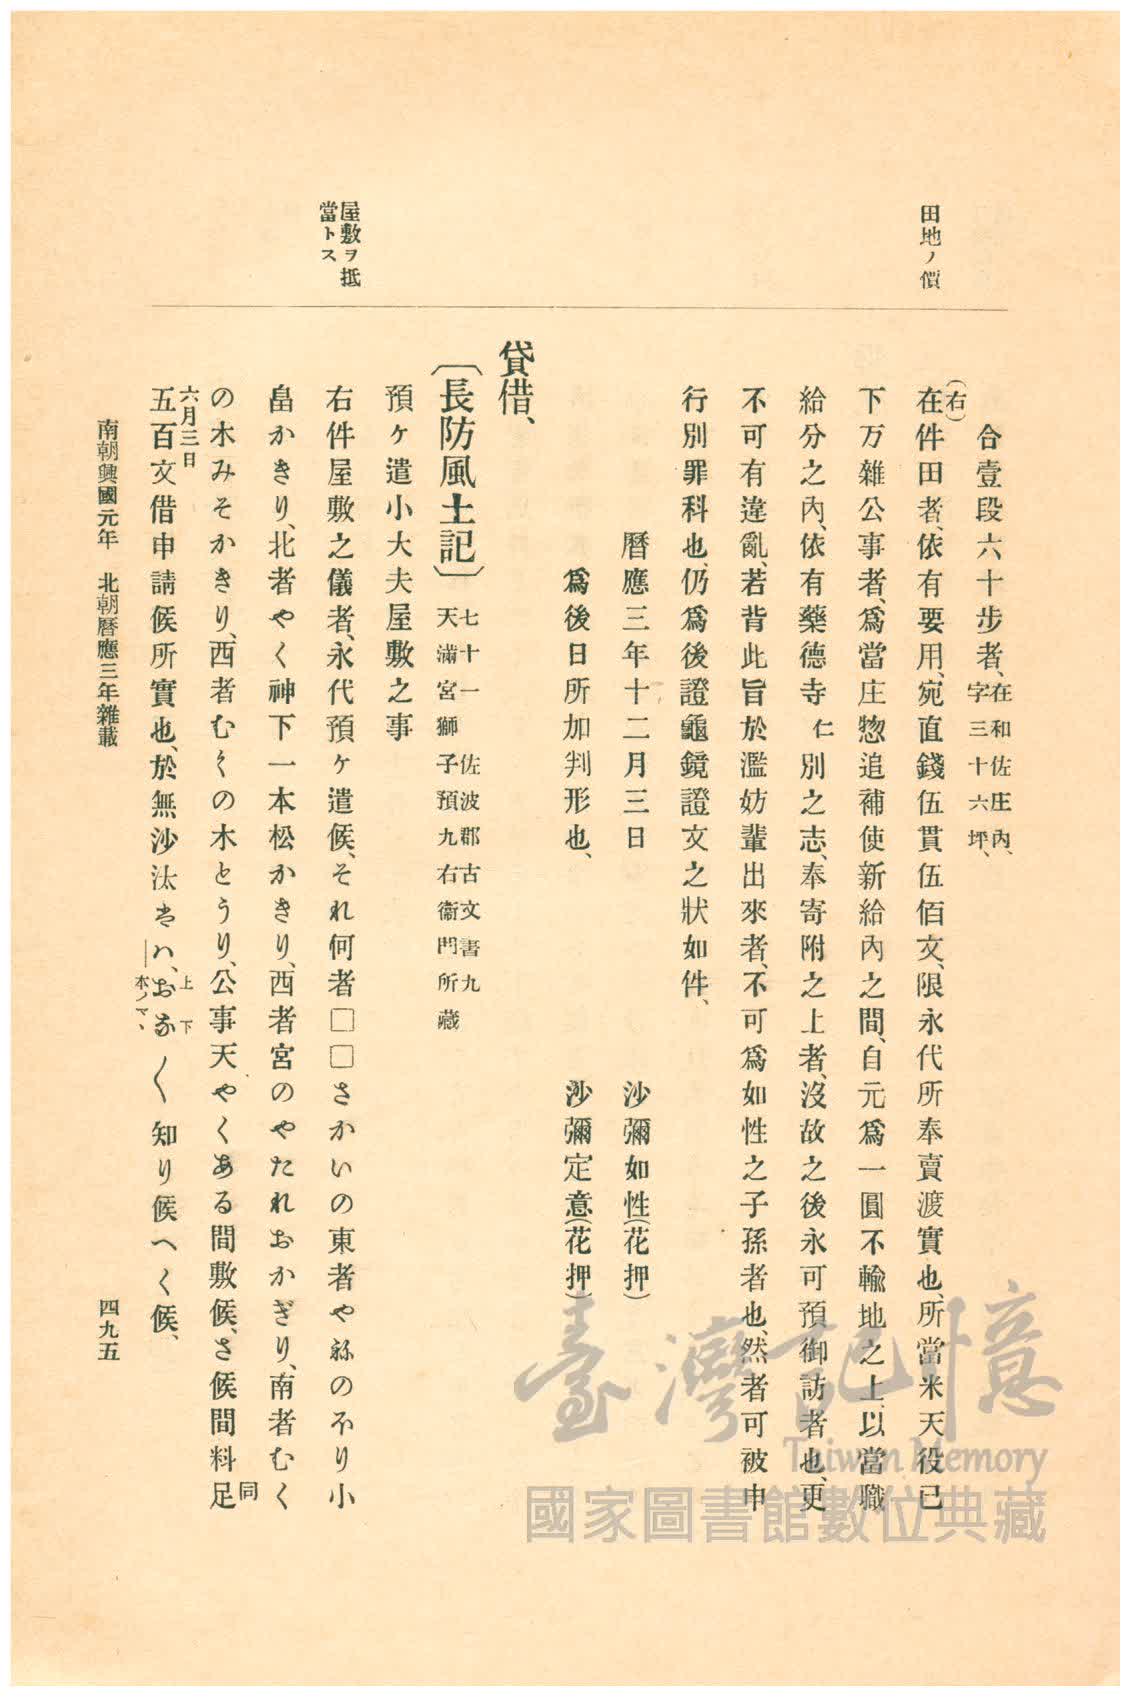 田地ノ價
合壹段六十步者、在和佐庄內、字三十六坪、
(右)
在件田者、依有要用、宛直錢伍貫伍佰文、限永代所奉賣渡實也、所當米天役已
下万雜公事者、爲當庄惣追補使新給內之間、自元爲一圓不輸地之上、以當職
給分之內、依有藥德寺仁別之志、奉寄附之上者、沒故之後永可預御訪者也、更
不可有違亂、若背此旨於濫妨輩出來者、不可爲如性之子孫者也、然者可被申
行別罪科也、仍爲後證龜鏡證文之狀如件、
曆應三年十二月三日 沙彌如性(花押)
爲後日所加判形也、 沙彌定意(花押)
貸借、
屋敷ヲ抵
當トス
〔長防風土記〕七十一 佐波郡古文書九
天滿宮獅子預九右衞門所藏
預ヶ遣小大夫屋敷之事
右件屋敷之儀者、永代預ヶ遣候、それ何者□□さかいの東者やねのホり小
畠かきり、北者やく神下一本松かきり、西者宮のやたれおかぎり、南者むく
の木みそかきり、西者むくの木とうり、公事天やくある間敷候、さ候間料足
同
六月三日
五百文借申請候所實也、於無沙汰者ハ、おな〱知り候へく候、
上 下
本ノマヽ
南朝興國元年 北朝曆應三年雜載
四九五
臺灣記憶
Taiwan Memory
國家圖書館數位典藏